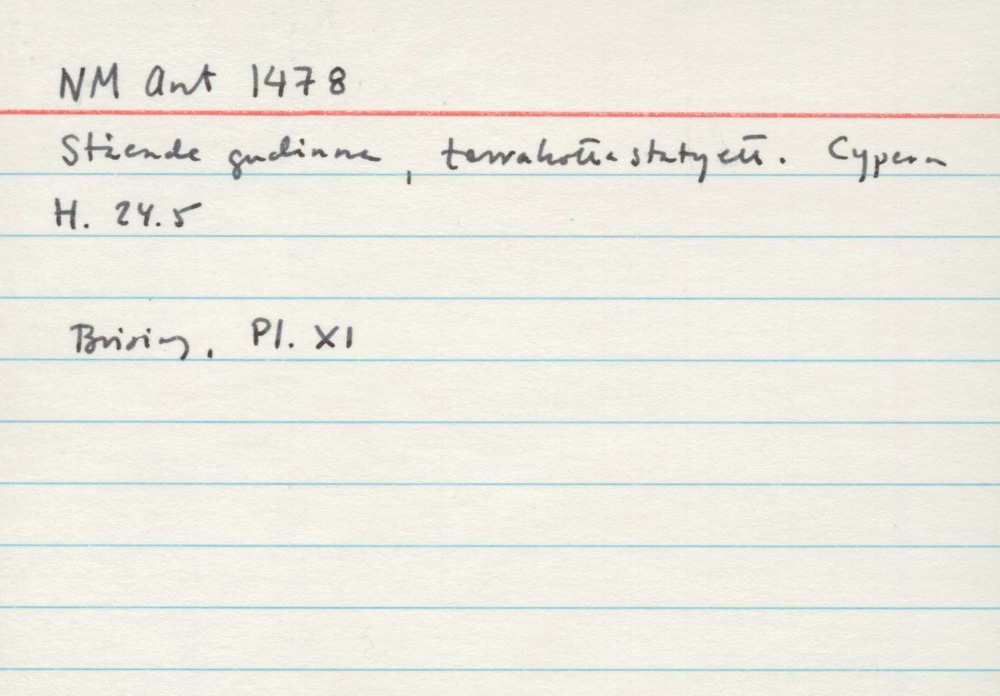 NM Ant 1478
Stående gudinna, terrakottastatyett. Cypern
H. 24.5
Brising, Pl. XI